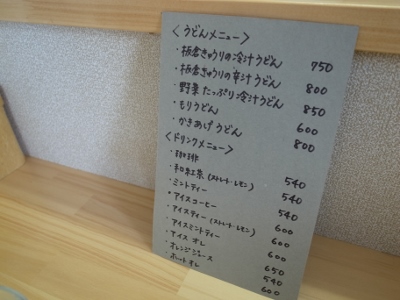 ＜うどんメニュー＞
・板倉きゅうりの冷汁うどん 750
・板倉きゅうりの辛汁うどん 800
・野菜たっぷり冷汁うどん 850
・もりうどん 600
・かきあげうどん 800
＜ドリンクメニュー＞
・珈琲
・和紅茶(ストレート・レモン) 540
・ミントティー 540
・アイスコーヒー 540
・アイスティー(ストレート・レモン) 600
・アイスミントティー 600
・アイスオレ 600
・オレンジジュース 650
・ホットオレ 540
600